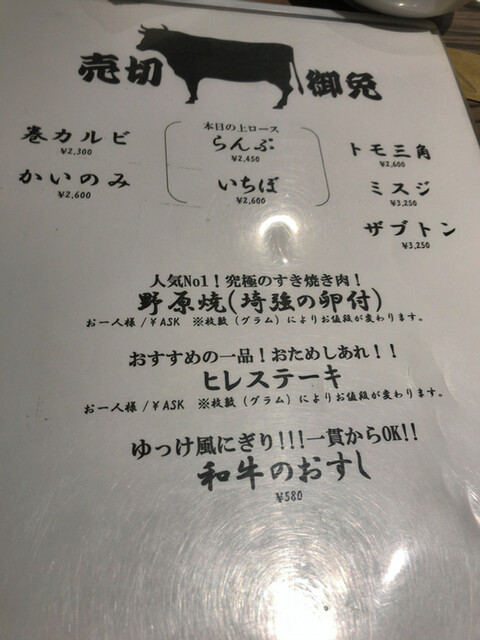 売切
御免
巻カルビ
¥2,300
かいのみ
¥2,600
本日の上ロース
らんぷ
¥2,450
いちぼ
¥2,600
トモ三角
¥2,600
ミスジ
¥3,250
ザブトン
¥3,250
人気No1！究極のすき焼き肉！
野原焼(埼強の卵付)
お一人様/¥ASK ※枚数（グラム）によりお値段が変わります。
おすすめの一品！おためしあれ！！
ヒレステーキ
お一人様/¥ASK ※枚数（グラム）によりお値段が変わります。
ゆっけ風にぎり!!!一貫からOK!!
和牛のおすし
¥580